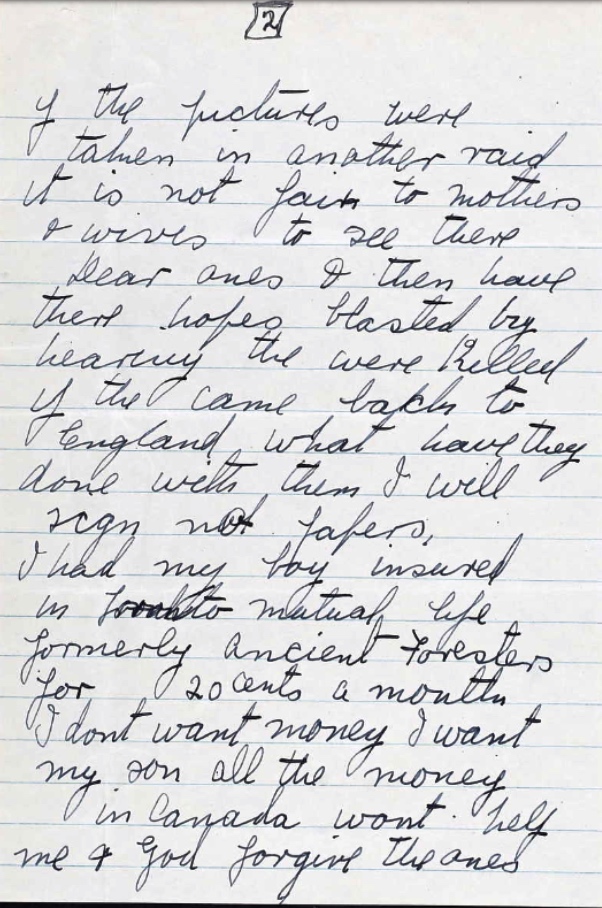 2
if the pictures were
taken in another raid
it is not fair to mothers
& wives to see there
Dear ones & then have
there hopes blasted by
hearing the were Killed
if the came back to
England what have they
done with them I will
sign not papers,
I had my boy insured
in Toronto mutual life
formerly ancient Foresters
for 20 cents a month
I dont want money I want
my son all the money
in Canada wont help
me & God forgive the ones